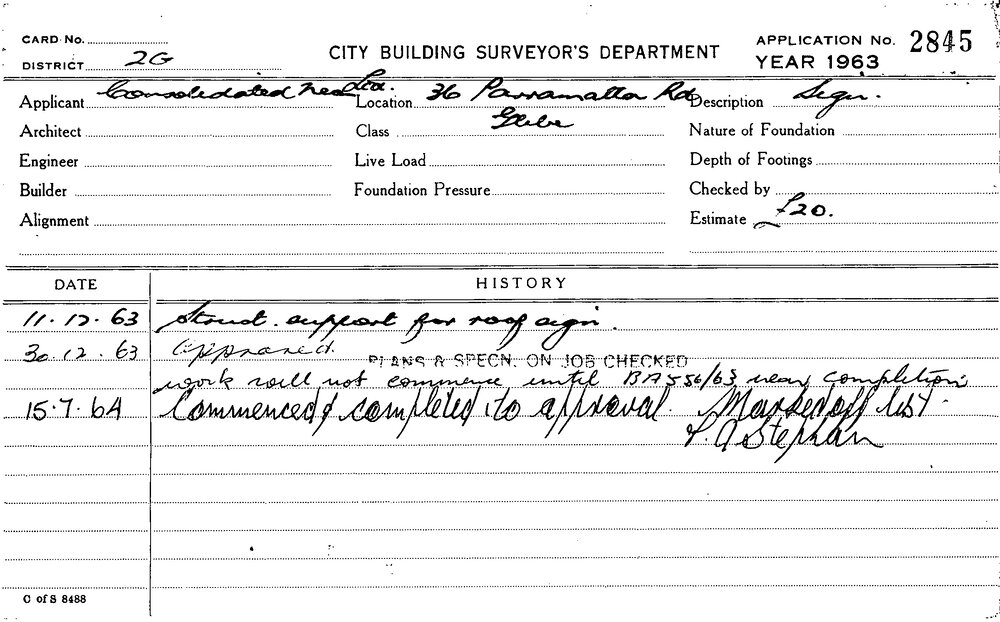 CARD No.
DISTRICT 2G
CITY BUILDING SURVEYOR'S DEPARTMENT
APPLICATION No. 2845
YEAR 1963
Applicant Consolidated Neo Ltd.
Location 36 Parramatta Rd
Description Sign.
Architect
Class Glebe
Nature of Foundation
Engineer
Live Load
Depth of Footings
Builder
Foundation Pressure
Checked by
Alignment
Estimate £20.
DATE
HISTORY
11.12.63 Struct. support for roof sign.
30.12.63 Approved.
PLANS & SPECN. ON JOB CHECKED
work will not commence until BA 556/63 near completion
15.7.64 Commenced & completed to approval. Marked off list.
Stephan
C of S 8488